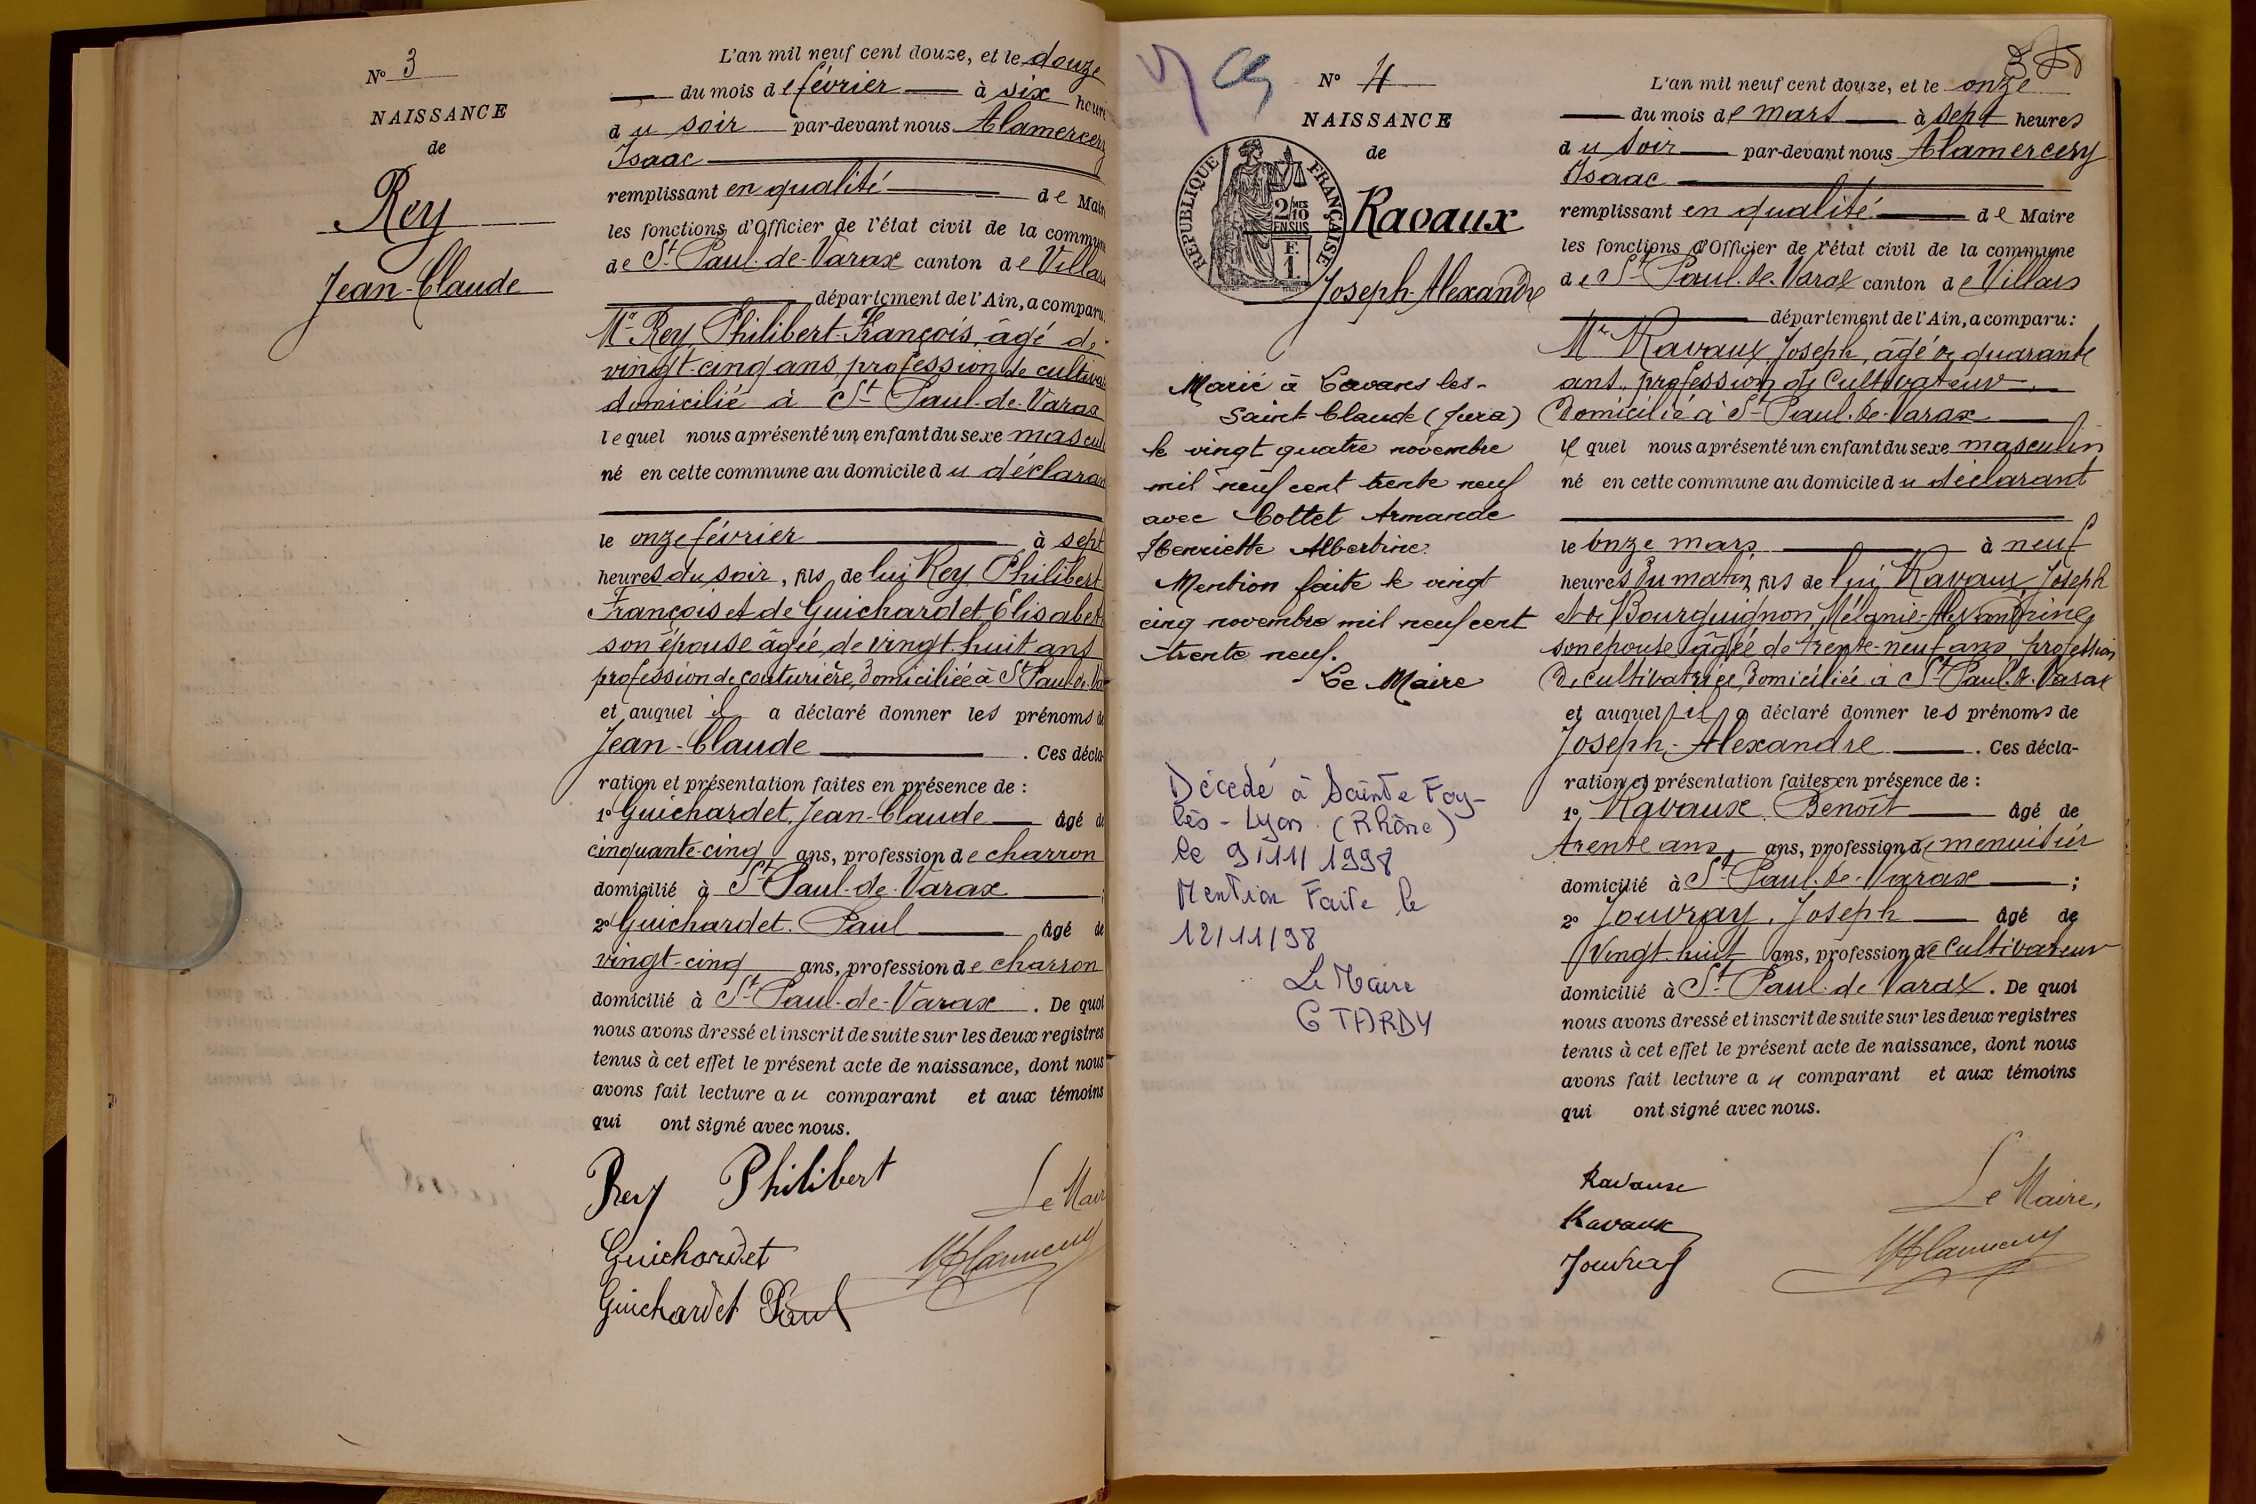 N° 3
NAISSANCE
de
Rey
Jean-Claude
L'an mil neuf cent douze, et le douze
du mois de février à six heure
du soir par-devant nous Alamercery
Isaac
remplissant en qualité de Mair
les fonctions d'Officier de l'état civil de la commune
de St Paul-de-Varax canton de Villars
département de l'Ain, a comparu:
Mr Rey Philibert-François, âgé de
vingt-cinq ans, profession de cultiva
domicilié à St Paul-de-Varax
lequel nous a présenté un enfant du sexe mascul
né en cette commune au domicile du déclarant
le onze février à sept
heures du soir, fils de lui Rey Philibert
François et de Guichardet Elisabeth
son épouse âgée de vingt-huit ans
profession de couturière, domiciliée à St Paul-de-Va
et auquel il a déclaré donner les prénoms de
Jean-Claude. Ces décla-
ration et présentation faites en présence de :
1° Guichardet, Jean-Claude âgé de
cinquante-cinq ans, profession de charron
domicilié à St Paul-de-Varax ;
2° Guichardet. Paul âgé de
vingt-cinq ans, profession de charron
domicilié à St Paul-de-Varax. De quoi
nous avons dressé et inscrit de suite sur les deux registres
tenus à cet effet le présent acte de naissance, dont nous
avons fait lecture au comparant et aux témoins
qui ont signé avec nous.
Rey Philibert
Le Mair
Guichardet
Guichardet Paul
N° 4
NAISSANCE
de
REPUBLIQUE FRANÇAISE
2/10 MES
EN SUS
F.
1.
Ravaux
Joseph-Alexandre
Marié à Cavares les-
Saint Claude (Jura)
le vingt quatre novembre
mil neuf cent trente neuf
avec Cottet Armande
Henriette Albertine.
Mention faite le vingt
cinq novembre mil neuf cent
trente neuf.
Le Maire
Décédé à Sainte Foy-
lès-Lyon (Rhône)
le 9/11/1998
Mention Faite le
12/11/98
Le Maire
G TARDY
L'an mil neuf cent douze, et le onze
du mois de mars à sept heures
du soir par-devant nous Alamercery
Isaac
remplissant en qualité de Maire
les fonctions d'Officier de l'état civil de la commune
de St Paul-de-Varax canton de Villars
département de l'Ain, a comparu:
Mr Ravaux Joseph, âgé de quarante
ans, profession de Cultivateur
Domicilié à St Paul-de-Varax
lequel nous a présenté un enfant du sexe masculin
né en cette commune au domicile du déclarant
le onze mars à neuf
heures du matin, fils de lui Ravaux Joseph
et de Bourguignon, Mélanie-Alexandrine,
son épouse âgée de trente-neuf ans, profession
De cultivatrice, domiciliée à St Paul-de-Varax
et auquel il a déclaré donner les prénoms de
Joseph-Alexandre. Ces décla-
ration et présentation faites en présence de :
1° Ravaux Benoît âgé de
trente ans, ans, profession de menuisier
domicilié à St Paul-de-Varax ;
2° Jouvray. Joseph âgé de
Vingt-huit ans, profession de cultivateur
domicilié à St Paul de Varax. De quoi
nous avons dressé et inscrit de suite sur les deux registres
tenus à cet effet le présent acte de naissance, dont nous
avons fait lecture au comparant et aux témoins
qui ont signé avec nous.
Ravaux
Le Maire,
Ravaux
Jouvray